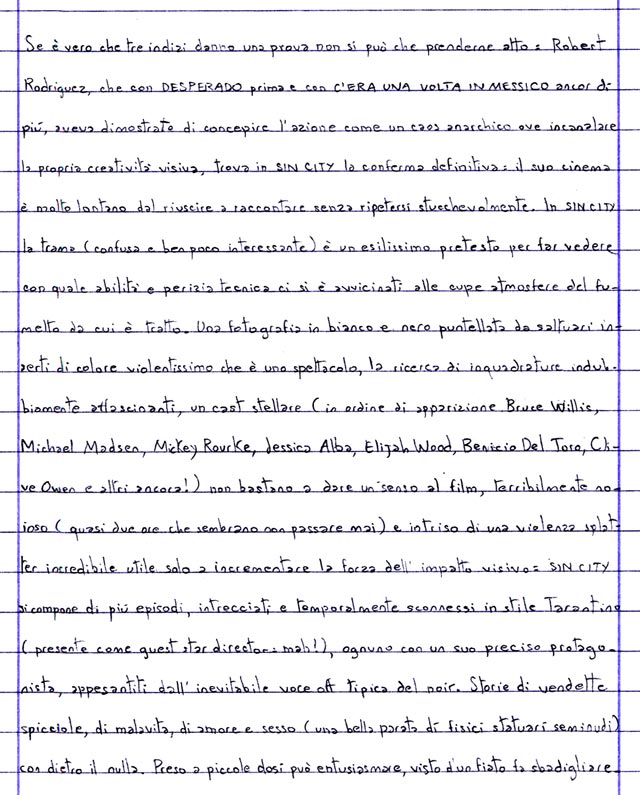 Se è vero che tre indizi danno una prova non si può che prenderne atto: Robert
Rodriguez, che con DESPERADO prima e con C'ERA UNA VOLTA IN MESSICO ancor di
più, aveva dimostrato di concepire l'azione come un caos anarchico ove incanalare
la propria creatività visiva, trova in SIN CITY la conferma definitiva: il suo cinema
è molto lontano dal riuscire a raccontare senza ripetersi stucchevolmente. In SIN CITY
la trama (confusa e ben poco interessante) è un esilissimo pretesto per far vedere
con quale abilità e perizia tecnica ci si è avvicinati alle cupe atmosfere del fu-
metto da cui è tratto. Una fotografia in bianco e nero puntellata da saltuari in-
serti di colore violentissimo che è uno spettacolo, la ricerca di inquadrature indub-
biamente affascinanti, un cast stellare (in ordine di apparizione Bruce Willis,
Michael Madsen, Mickey Rourke, Jessica Alba, Elijah Wood, Benicio Del Toro, Cli-
ve Owen e altri ancora!) non bastano a dare un senso al film, terribilmente no-
ioso (quasi due ore che sembrano non passare mai) e intriso di una violenza splat-
ter incredibile utile solo a incrementare la forza dell'impatto visivo: SIN CITY
si compone di più episodi, intrecciati e temporalmente sconnessi in stile Tarantino
(presente come guest star director: mah!), ognuno con un suo preciso protago-
nista, appesantiti dall'inevitabile voce off tipica del noir. Storie di vendette
spicciole, di malavita, di amore e sesso (una bella parata di fisici statuari seminudi)
con dietro il nulla. Preso a piccole dosi può entusiasmare, visto d'un fiato fa sbadigliare.